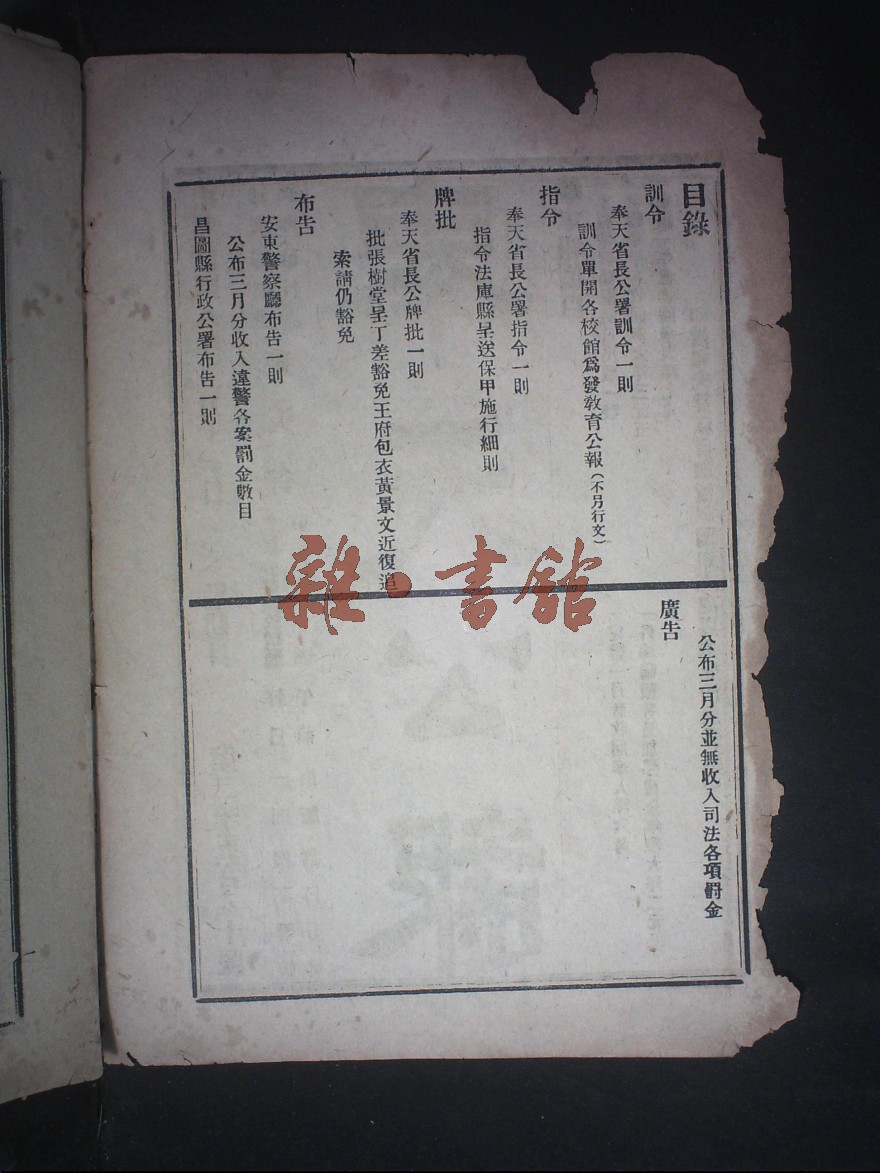 目錄
訓令
奉天省長公署訓令一則
訓令單開各校館爲發教育公報(不另行文)
指令
奉天省長公署指令一則
指令法庫縣呈送保甲施行細則
牌批
奉天省長公牌批一則
批張樹堂呈丁差豁免王府包衣黃景文近復追
索請仍豁免
布告
安東警察廳布告一則
公布三月分收入違警各案罰金數目
昌圖縣行政公署布告一則
公布三月分並無收入司法各項罰金
廣告
雜·書館